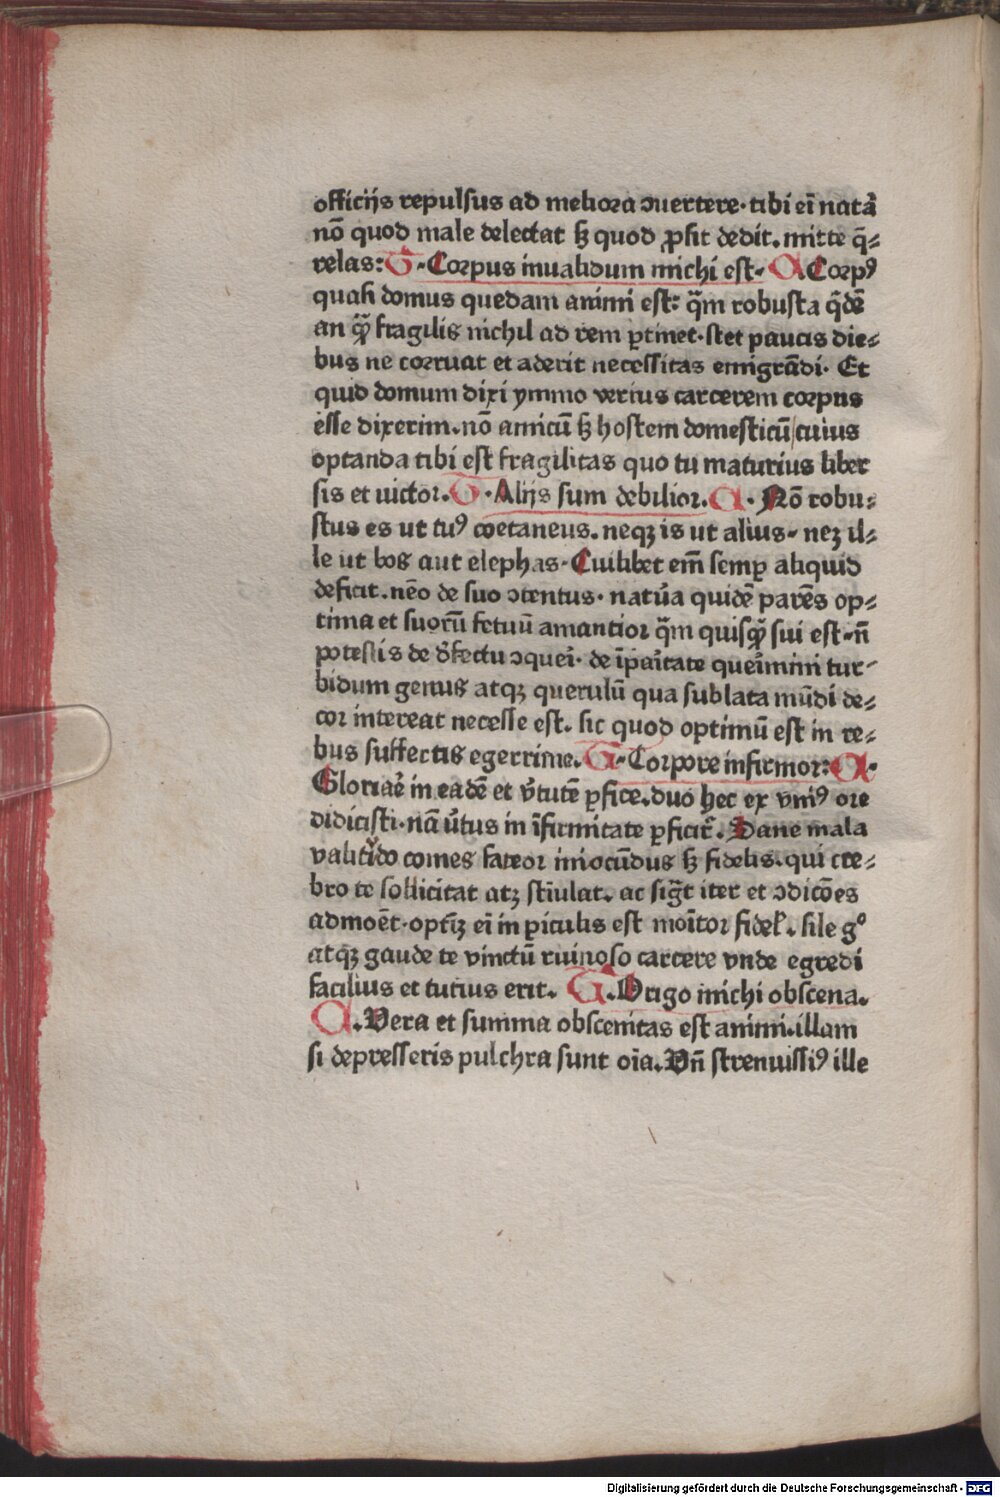 officijs repulsus ad meliora ɔuertere· tibi ei̅ natā
nō quod male delectat sꝫ quod ꝓsit dedit. mitte q̄⸗
relas: G · Corpus inualidum michi est· A Corpꝰ
quasi domus quedam animi est: q̄m robusta q̇dē
an qꝙ̄ fragilis nichil ad rem ꝑtinet· stet paucis die⸗
bus ne corruat et aderit necessitas emigrādi· Et
quid domum dixi ymmo verius carcerem corpus
esse dixerim. nō amicū sꝫ hostem domesticū/cuius
optanda tibi est fragilitas quo tu maturius liber
sis et uictor. G · Alijs sum debilior. A · Nō robu⸗
stus es ut tuꝰ coetaneus. neqꝫ is ut alius· neꝫ il⸗
le ut bos aut elephas· Cuilibet em̄ semꝑ aliquid
deficit. nēo de suo ɔtentus· natu̾a quidē parēs op⸗
tima et suorū fetuū amantior q̄m quisqꝙ̄ sui est· n̄
potestis de d̾fectu ɔquei̾· de īpai̾tate quei̾mini tur⸗
bidum genus atqꝫ querulū qua sublata mūdi de⸗
cor intereat necesse est. sic quod optimū est in re⸗
bus suffectis egerrime. G · Corpore infirmor: A ·
Gloriae̾ in eadē et v̾tutē ꝑfice. duo hec ex vniꝰ ore
didicisti· nā u̾tus in īfirmitate ꝑficit̾. Sane mala
valitᷣdo comes fateor iniocūdus sꝫ fidelis. qui cre⸗
bro te sollicitat atꝫ stīulat. ac sig̾t iter et ɔdicōes
admoēt· optīꝫ ei̅ in ꝑiculis est moītor fidel̾. sile gͦ
atqꝫ gaude te vinctū ruinoso carcere vnde egredi
facilius et tutius erit. G · Origo michi obscena.
A . Vera et summa obscenitas est animi. illam
si depresseris pulchra sunt oīa. Vn̄ strenuissiꝰ ille
Digitalisierung gefördert durch die Deutsche Forschungsgemeinschaft - DFG